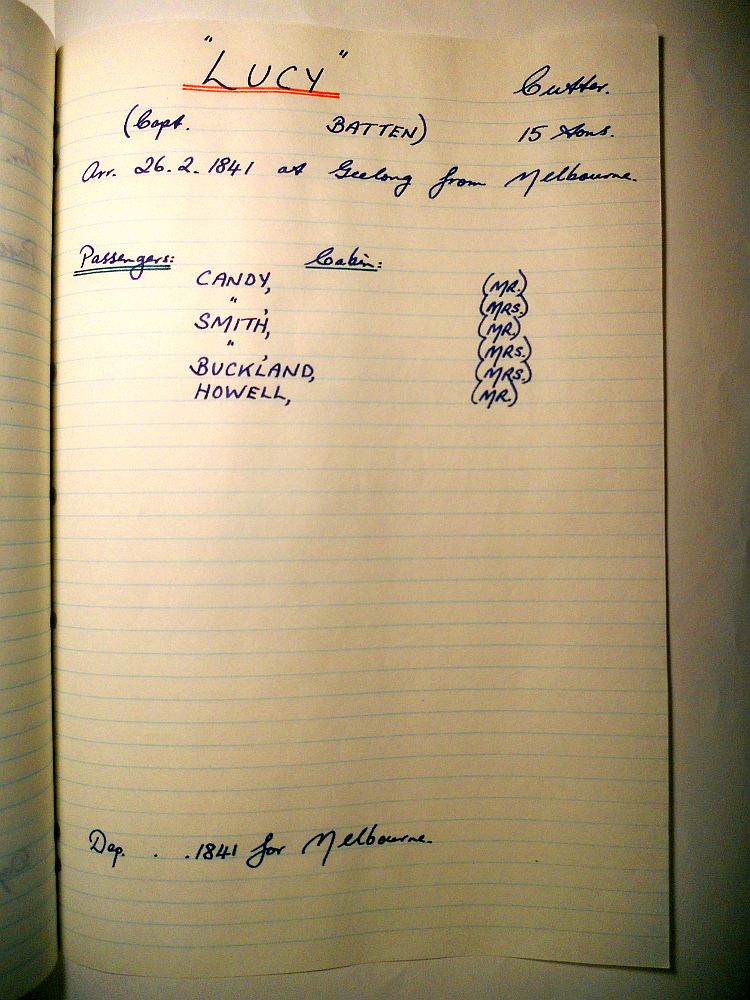 "LUCY" Cutter.
(Capt. BATTEN) 15 tons.
Arr. 26.2.1841 at Geelong from Melbourne.
Passengers: Cabin:
CANDY, (MR.)
" , (MRS.)
SMITH, (MR.)
" , (MRS.)
BUCKLAND, (MRS.)
HOWELL, (MR.)
Dep. . .1841 for Melbourne.